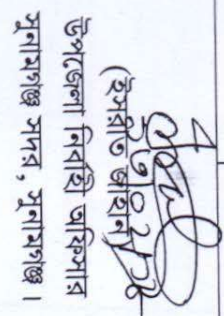 (ইসরাত জাহান)
উপজেলা নির্বাহী অফিসার
সুনামগঞ্জ সদর, সুনামগঞ্জ।